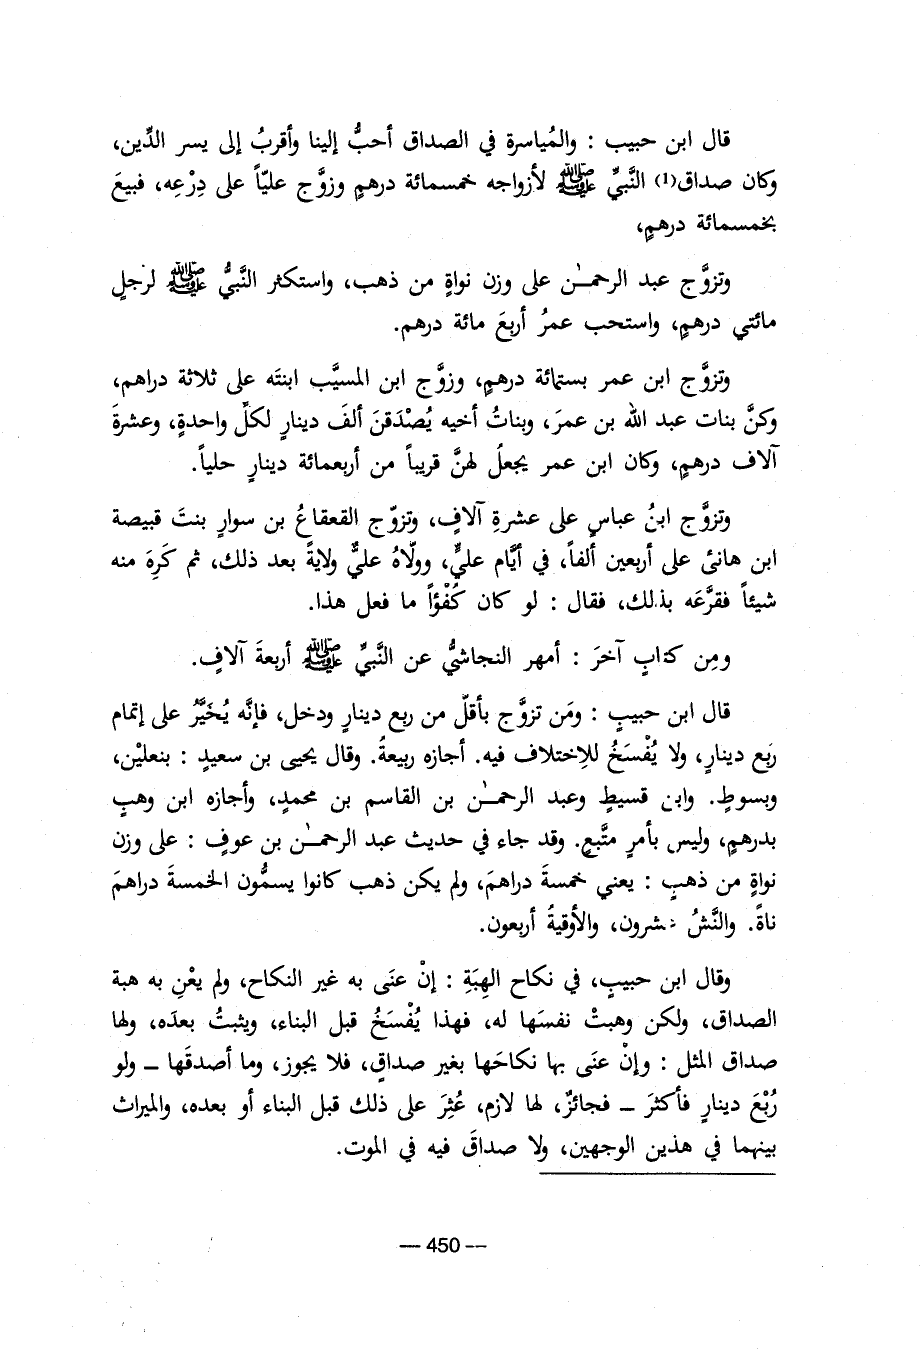 قال ابن حبيب : والمُياسرة في الصداق أحبُّ إلينا وأقربُ إلى يسر الدِّين،
وكان صداق(1) النَّبيِّ ﷺ لأزواجه خمسمائة درهمٍ وزوَّج عليّاً على دِرْعِه، فبيعَ
بخمسمائة درهمٍ،
وتزوَّج عبد الرحمـٰن على وزن نواةٍ من ذهب، واستكثر النَّبيُّ ﷺ لرَجلٍ
مائتي درهمٍ، واستحب عمرُ أربعَ مائة درهم.
وتزوَّج ابن عمر بستمائة درهمٍ، وزوَّج ابن المسيَّب ابنتَه على ثلاثة دراهم،
وكنَّ بنات عبد الله بن عمرَ، وبناتُ أخيه يُصْدَقنَ ألفَ دينارٍ لكلِّ واحدةٍ، وعشرةَ
آلاف درهمٍ، وكان ابن عمر يجعلُ لهنَّ قريباً من أربعمائة دينارٍ حلياً.
وتزوَّج ابنُ عباسٍ على عشرةِ آلافٍ، وتزوّج القعقاعُ بن سوارٍ بنتَ قبيصة
ابن هانئ على أربعين ألفاً، في أيَّام عليٍّ، وولّاهُ عليٌّ ولايةً بعد ذلك، ثم كَرِهَ منه
شيئاً فقرَّعَه بذلك، فقال : لو كان كُفْؤاً ما فعل هذا.
ومِن كتابٍ آخرَ : أمهر النجاشيُّ عن النَّبيِّ ﷺ أربعةَ آلافٍ.
قال ابن حبيبٍ : ومَن تزوَّج بأقلّ من ربع دينارٍ ودخل، فإنَّه يُخَيَّرُ على إتمام
رَبع دينارٍ، ولا يُفْسَخُ للاِختلاف فيه. أجازه ربيعةُ. وقال يحيى بن سعيدٍ : بنعليْن،
وبسوطٍ. وابن قسيطٍ وعبد الرحمـٰن بن القاسم بن محمدٍ، وأجازه ابن وهبٍ
بدرهمٍ، وليس بأمرٍ متَّبعٍ. وقد جاء في حديث عبد الرحمـٰن بن عوفٍ : على وزن
نواةٍ من ذهبٍ : يعني خمسةَ دراهمَ، ولم يكن ذهب كانوا يسمُّون الخمسةَ دراهمَ
ناةً. والنَّشُ عشرون، والأوقيةُ أربعون.
وقال ابن حبيبٍ، في نكاح الهِبَةِ : إنْ عنَى به غير النكاح، ولم يعْنِ به هبة
الصداق، ولكن وهبتْ نفسَها له، فهذا يُفْسَخُ قبل البناء، ويثبتُ بعدَه، ولها
صداق المثل : وإنْ عنَى بها نكاحَها بغير صداقٍ، فلا يجوز، وما أصدقَها ــ ولو
رُبْعَ دينارٍ فأكثرَ ــ فجائزٌ، لها لازم، عُثِرَ على ذلك قبل البناء أو بعده، والميراث
بينهما في هذين الوجهين، ولا صداقَ فيه في الموت.
— 450 —